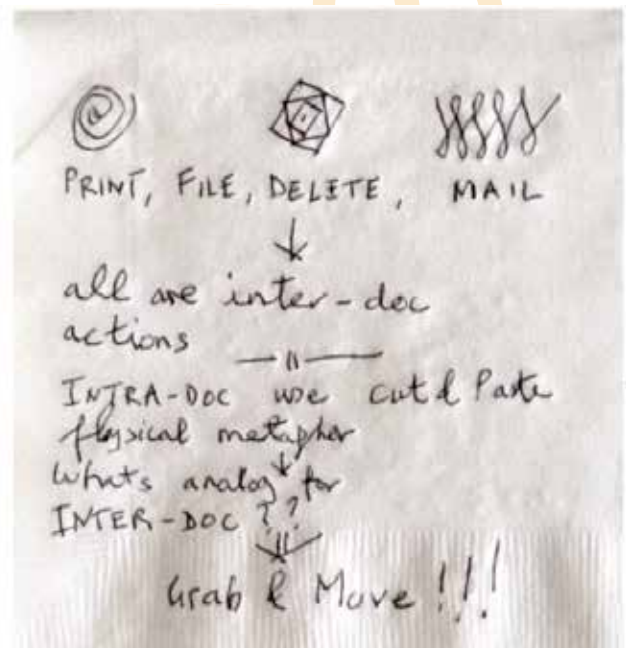 PRINT, FILE, DELETE, MAIL
all are inter-doc
actions
INTRA-DOC we cut & Paste
physical metaphor
Whats analog for
INTER-DOC ??
Grab & Move!!!